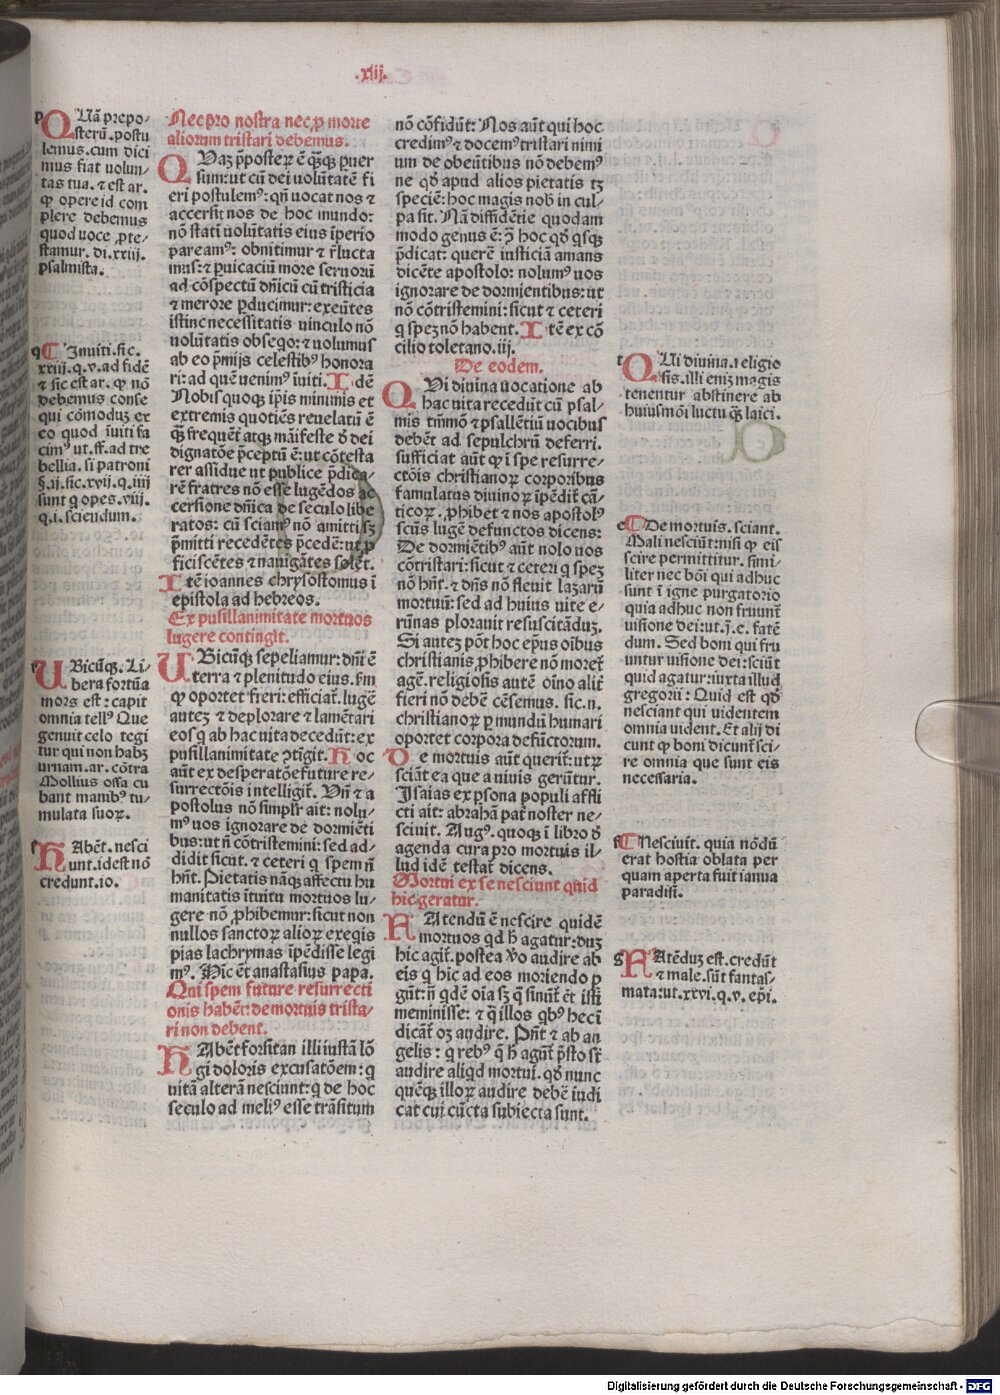 .xiij.
p QUã prepo-
sterũ. postu
lemus. cum dici
mus fiat uolun-
tas tua. ⁊ est ar.
ꝙ opere id com
plere debemus
quod uoce ꝓte-
stamur. di. xxiij.
psalmista.
q Jnuiti. sic.
xxiij. q. v. ad fidē
⁊ sic est ar. ꝙ nō
debemus conse
qui cōmoduꝫ ex
eo quod īuiti fa
cimꝰ ut. ff. ad tre
bellia. si patroni
§. ii. sic. xvij. q. iiij
sunt q opes. viij.
q. i. sciendum.
r UBicũqꝫ. Li-
bera fortũa
mors est: capit
omnia tellꝰ Que
genuit celo tegi
tur qui non habꝫ
urnam. ar. cōtra
Mollius ossa cu
bant manibꝰ tu-
mulata suoꝝ.
s HAbēt. nesci
unt. idest nō
credunt. io.
Nec pro nostra nec ꝓ morte
aliorum tristari debemus.
QUaꝫ p̄posteꝝ ē q̄ꝫqꝫ ꝑuer
sum: ut cũ dei uolũtatē fi
eri postulemꝰ: qñ uocat nos ⁊
accersit nos de hoc mundo:
nō stati uolũtatis eius īperio
pareamꝰ: obnitimur ⁊ r̄lucta
mur: ⁊ ꝑuicaciũ more seruorũ
ad cōspectũ dñicũ cũ tristicia
⁊ merore ꝑducimur: exeũtes
istinc necessitatis uinculo nō
uolũtatis obseqo: ⁊ uolumus
ab eo p̄mijs celestibꝰ honora
ri: ad quē uenimꝰ īuiti. Jdē
Nobis quoqꝫ īpis minimis et
extremis quotiēs reuelatũ ē
q̄ꝫ frequēt̄ atqꝫ māifeste d̄ dei
dignatōe p̄ceptũ ē: ut cōtesta
rer assidue ut publice p̄dica-
rē fratres nō esse lugēdos ac
cersione dñica de seculo libe
ratos: cũ sciamꝰ nō amitti sꝫ
p̄mitti recedētes p̄cedē: ut ꝓ
ficiscētes ⁊ nauigātes solēt.
Jtē ioannes chrysostomus ī
epistola ad hebreos.
Ex pusillanimitate mortuos
lugere contingit.
UBicũqꝫ sepeliamur: dñi ē
terra ⁊ plenitudo eius. fm
ꝙ oportet fieri: efficiat̄. lugē
auteꝫ ⁊ deplorare ⁊ lamētari
eos q ab hac uita decedũt: ex
pusillanimitate ꝯtīgit. Hoc
aũt ex desperatōe future re-
surrectōis intelligit̄. Vñ ⁊ a
postolus nō simplr̄ ait: nolu-
mꝰ uos ignorare de dormiēti
bus: ut ñ cōtristemini: sed ad-
didit sicut. ⁊ ceteri q spem ñ
hñt. Pietatis nāqꝫ affectu hu
manitatis ītuitu mortuos lu-
gere nō ꝓhibemur: sicut non
nullos sanctoꝝ alioꝝ exeqis
pias lachrymas īpēdisse legi
mꝰ. Hic ēt anastasius papa.
Qui spem future resurrecti
onis habēt: de mortuis trista-
ri non debent.
HAbēt forsitan illi iustā lō
gi doloris excusatōem: q
uitā alterā nesciunt: q de hoc
seculo ad meliꝰ esse trāsitum
nō cōfidũt: Nos aũt qui hoc
credimꝰ ⁊ docemꝰ tristari nimi
um de obeũtibus nō debemꝰ
ne qđ apud alios pietatis tꝫ
speciē: hoc magis nob̄ in cul-
pa sit. Nā diffidētie quodam
modo genus ē: ꝯ̄ hoc qđ qsqꝫ
p̄dicat: querē iusticiā amans
dicēte apostolo: nolumꝰ uos
ignorare de dormientibus: ut
nō cōtristemini: sicut ⁊ ceteri
q speꝫ nō habent. Jtē ex cō
cilio toletano. iij.
De eodem.
QUi diuina uocatione ab
hac uita recedũt cũ psal-
mis tm̄mō ⁊ psallētiũ uocibus
debēt ad sepulchrũ deferri.
sufficiat aũt ꝙ ī spe resurre-
ctōis christianoꝝ corporibus
famulatus diuinoꝝ īpēdit̄ cā-
ticoꝝ. ꝓhibet ⁊ nos apostolꝰ
scũs lugē defunctos dicens:
De dormiētibꝰ aũt nolo uos
cōtristari: sicut ⁊ ceteri q speꝫ
nō hñt. ⁊ dñs nō fleuit lazarũ
mortuũ: sed ad huius uite e-
rũnas plorauit resuscitāduꝫ.
Si auteꝫ pōt hoc ep̄us oībus
christianis ꝓhibere nō moret̄
agē. religiosis autē oīno alit̄
fieri nō debē cēsemus. sic. n.
christianoꝝ ꝑ mundũ humari
oportet corpora defũctorum.
De mortuis aũt querit̄: utꝝ
sciāt ea que a uiuis gerũtur.
Jsaias ex ꝑsona populi affli
cti ait: abrahā pat̄ noster ne-
sciuit. Augꝰ. quoqꝫ ī libro d̄
agenda cura pro mortuis il-
lud idē testat̄ dicens.
Mortui ex se nesciunt quid
hic geratur.
FAtendũ ē nescire quidē
mortuos qd h̄ agatur: duꝫ
hic agit̄. postea v̄o audire ab
eis q hic ad eos moriendo ꝑ
gũt: ñ qdē oīa sꝫ q sinũt̄ ēt isti
meminisse: ⁊ q illos qbꝰ hec
dicāt̄ oꝫ audire. Pñt ⁊ ab an
gelis: q rebꝰ q h̄ agũt̄ p̄sto sr̄
audire aliqd mortui. qđ nunc
quēqꝫ illoꝝ audire debē iudi
cat cui cũcta subiecta sunt.
t QUi diuina. ⁊ religio
sis. illi eniꝫ magis
tenentur abstinere ab
huiusmōi luctu q̄ꝫ laici.
e De mortuis. sciant.
Mali nesciũt: nisi ꝙ eis
scire permittitur. simi-
liter nec bōi qui adhuc
sunt ī igne purgatorio
quia adhuc non fruunt̄
uisione dei: ut j. e. fatē
dum. Sed boni qui fru
untur uisione dei: sciũt
quid agatur: iuxta illud
gregorii: Quid est qđ
nesciant qui uidentem
omnia uident. Et alij di
cunt ꝙ boni dicunt̄ sci-
re omnia que sunt eis
necessaria.
f Nesciuit. quia nōdũ
erat hostia oblata per
quam aperta fuit ianua
paradisi.
g FAtēduꝫ est. credũt
⁊ male. sũt fantas-
mata: ut. xxvi. q. v. epi.
Digitalisierung gefördert durch die Deutsche Forschungsgemeinschaft - DFG